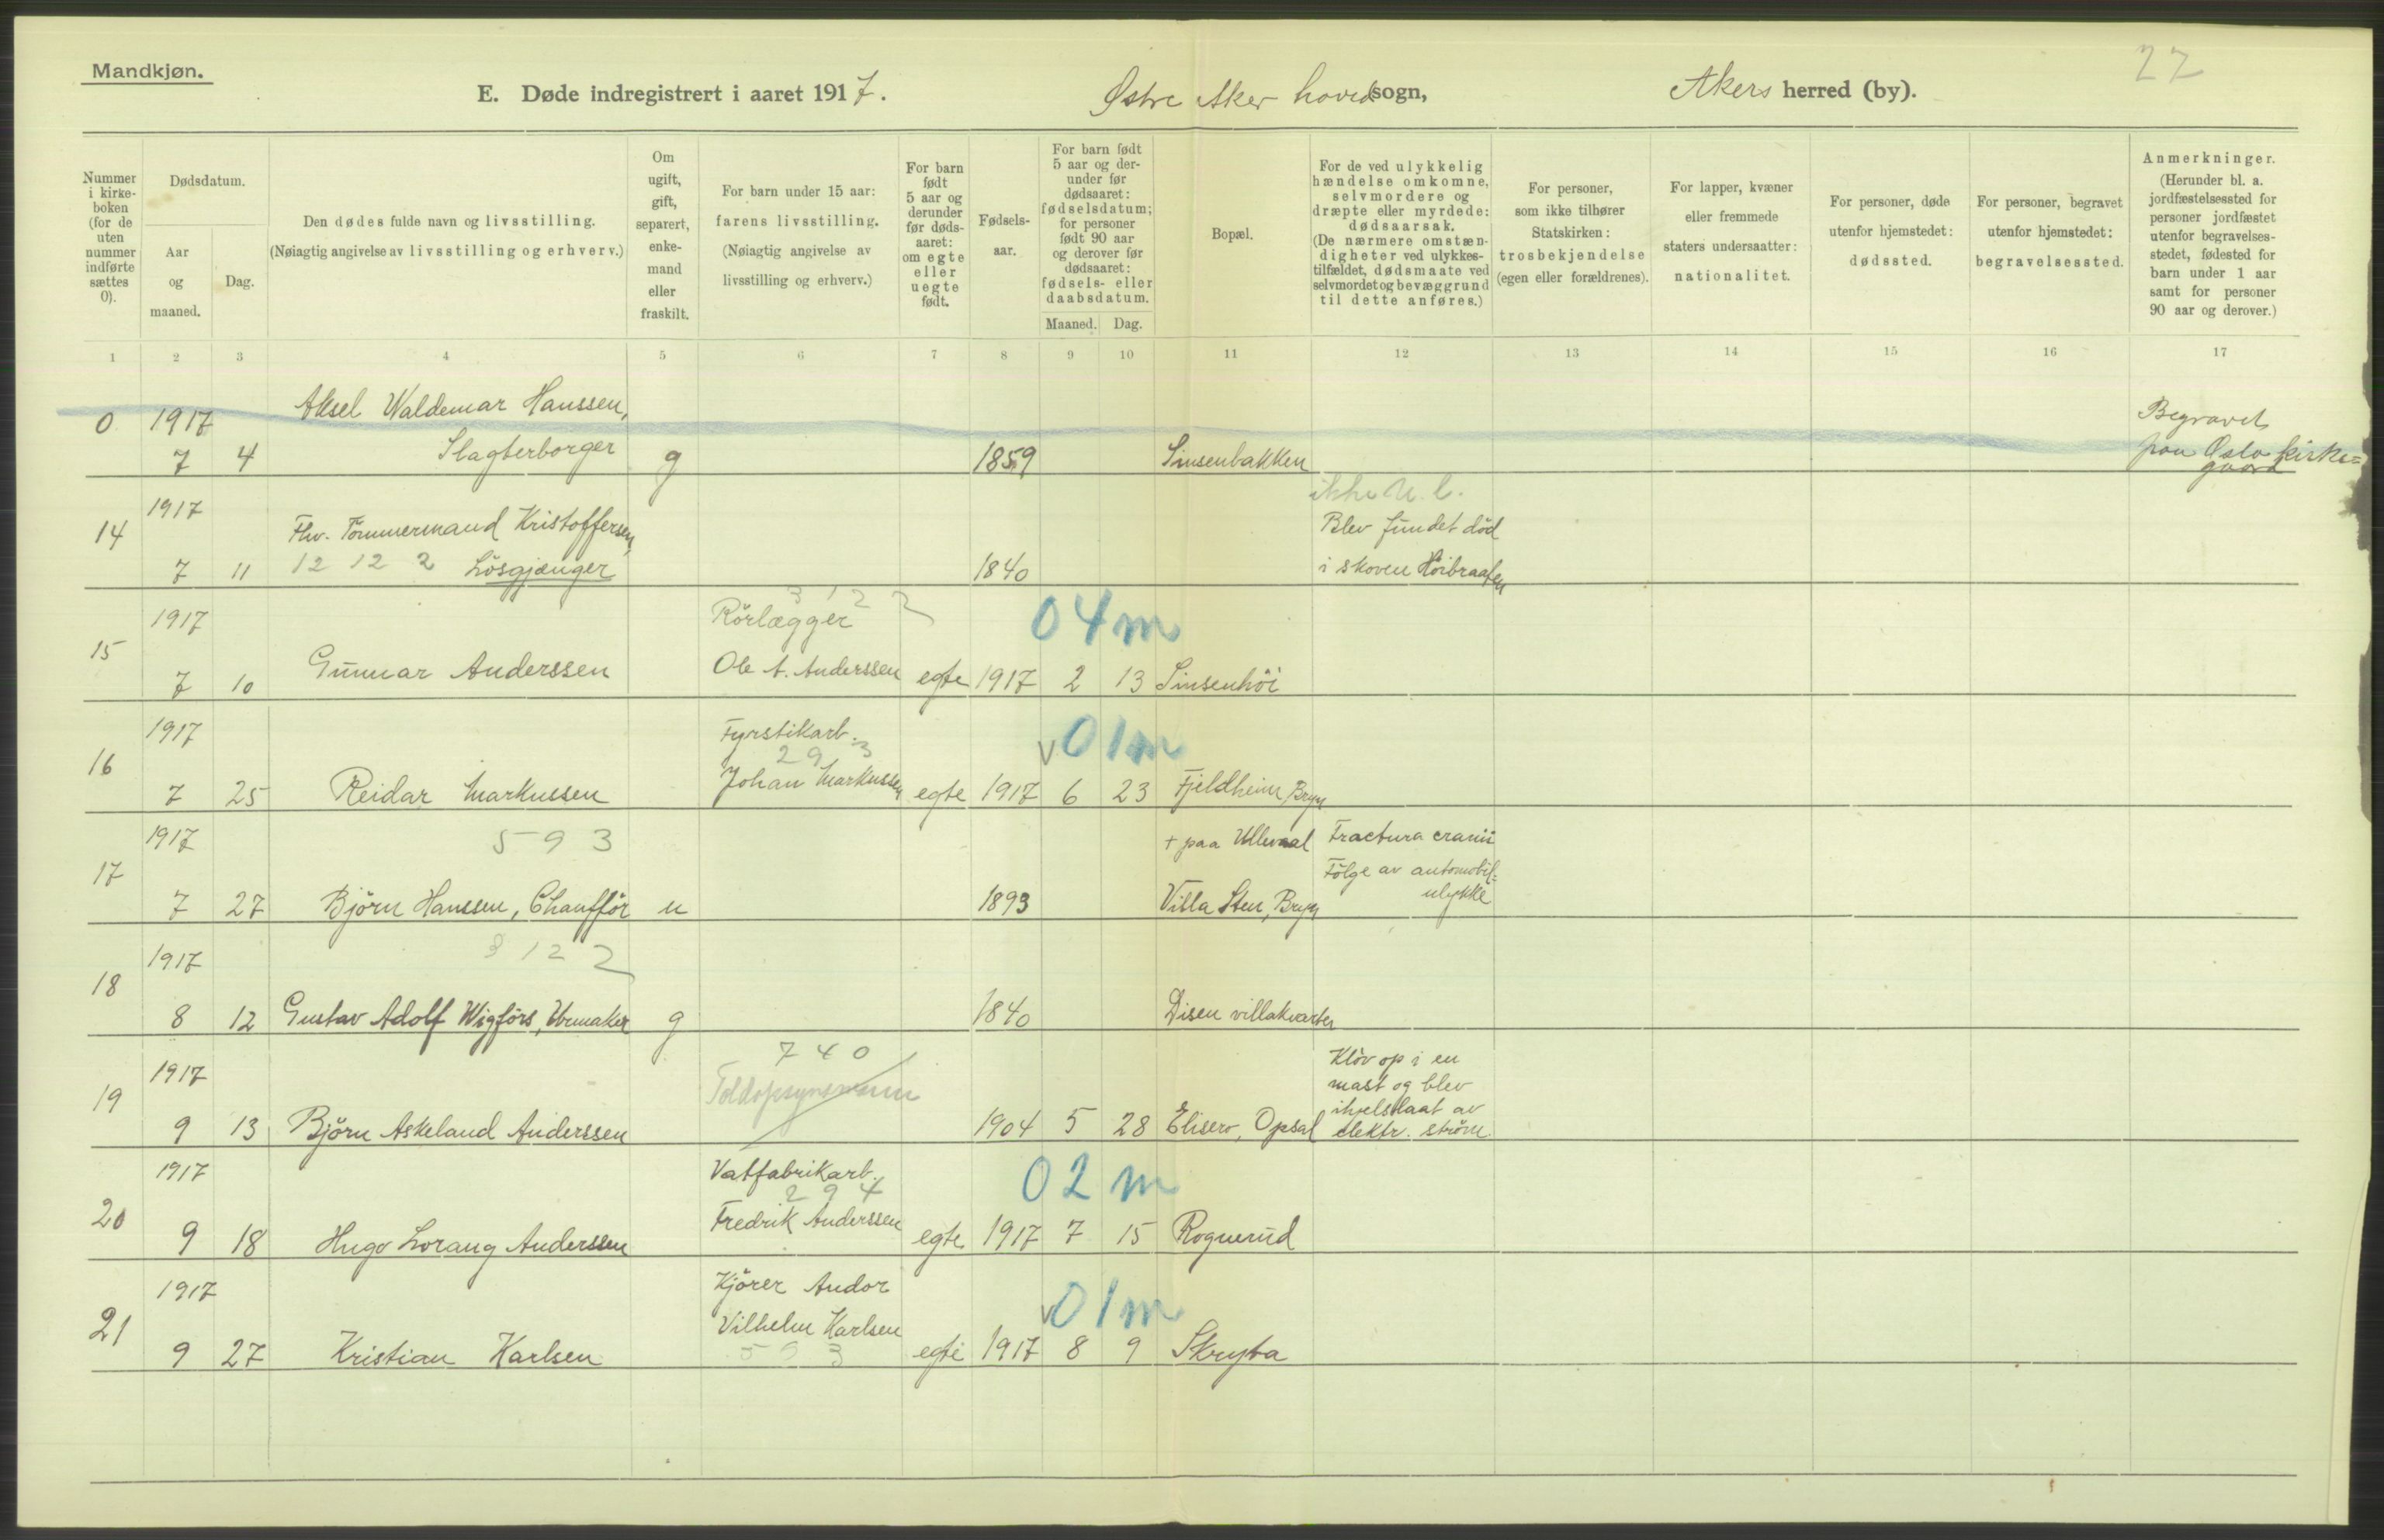 Mandkjøn.
27
E. Døde indregistrert i aaret 1917.
Østre Aker hovedsogn,
Akers herred (by).
Nummer i kirke-boken (for de uten nummer indførte sættes 0).
Dødsdatum.
Aar og maaned.
Dag.
Den dødes fulde navn og livsstilling.
(Nøiagtig angivelse av livsstilling og erhverv.)
Om ugift, gift, separert, enke-mand eller fraskilt.
For barn under 15 aar: farens livsstilling.
(Nøiagtig angivelse av livsstilling og erhverv.)
For barn født 5 aar og derunder før døds-aaret: om egte eller uegte født.
Fødsels-aar.
For barn født 5 aar og der-under før dødsaaret: fødselsdatum; for personer født 90 aar og derover før dødsaaret: fødsels- eller daabsdatum.
Maaned. Dag.
Bopæl.
For de ved ulykkelig hændelse omkomne, selvmordere og dræpte eller myrdede: dødsaarsak.
(De nærmere omstæn-digheter ved ulykkes-tilfældet, dødsmaate ved selvmordet og bevæggrund til dette anføres.)
For personer, som ikke tilhører Statskirken: trosbekjendelse (egen eller forældrenes).
For lapper, kvæner eller fremmede staters undersaatter: nationalitet.
For personer, døde utenfor hjemstedet: dødssted.
For personer, begravet utenfor hjemstedet: begravelsessted.
Anmerkninger.
(Herunder bl. a. jordfæstelsessted for personer jordfæstet utenfor begravelses-stedet, fødested for barn under 1 aar samt for personer 90 aar og derover.)
1 2 3 4 5 6 7 8 9 10 11 12 13 14 15 16 17
0 1917 Aksel Waldemar Hanssen, Begravet
7 4 Slagterborger g 1859 Sinsenbakken paa Oslo kirke=
gaard
ikke U. l.
14 1917 Fhv. Tömmermand Kristoffersen, Blev fundet död
7 11 12 12 2 Lösgjænger 1840 i skoven Höibraaten
3 1 2 2
15 1917 Rörlægger 04m
7 10 Gunnar Anderssen Ole A. Anderssen egte 1917 2 13 Sinsenhöi
16 1917 Fyrstikarb. v 01m
2 9 3
7 25 Reidar Markussen Johan Markussen egte 1917 6 23 Fjeldheim, Bryn
17 1917 5 9 3 + paa Ullevaal Fractura cranii
Fölge av automobil=
ulykke
7 27 Björn Hanssen, Chaufför u 1893 Villa Sten, Bryn
18 1917 3 12 2
8 12 Gustav Adolf Wigförs, Urmaker g 1840 Disen villakvarter
7 4 0
19 1917 Toldopsynsmann Klöv op i en
mast og blev
ihjelslaat av
9 13 Björn Askeland Anderssen 1904 5 28 Elisero, Opsal elektr. ström.
20 1917 Vatfabrikarb. 02m
2 9 4
9 18 Hugo Lorang Anderssen Fredrik Anderssen egte 1917 7 15 Rognerud
21 1917 Kjörer Andor v 01m
Vilhelm Karlsen
9 27 Kristian Karlsen 5 9 3 egte 1917 8 9 Skryta